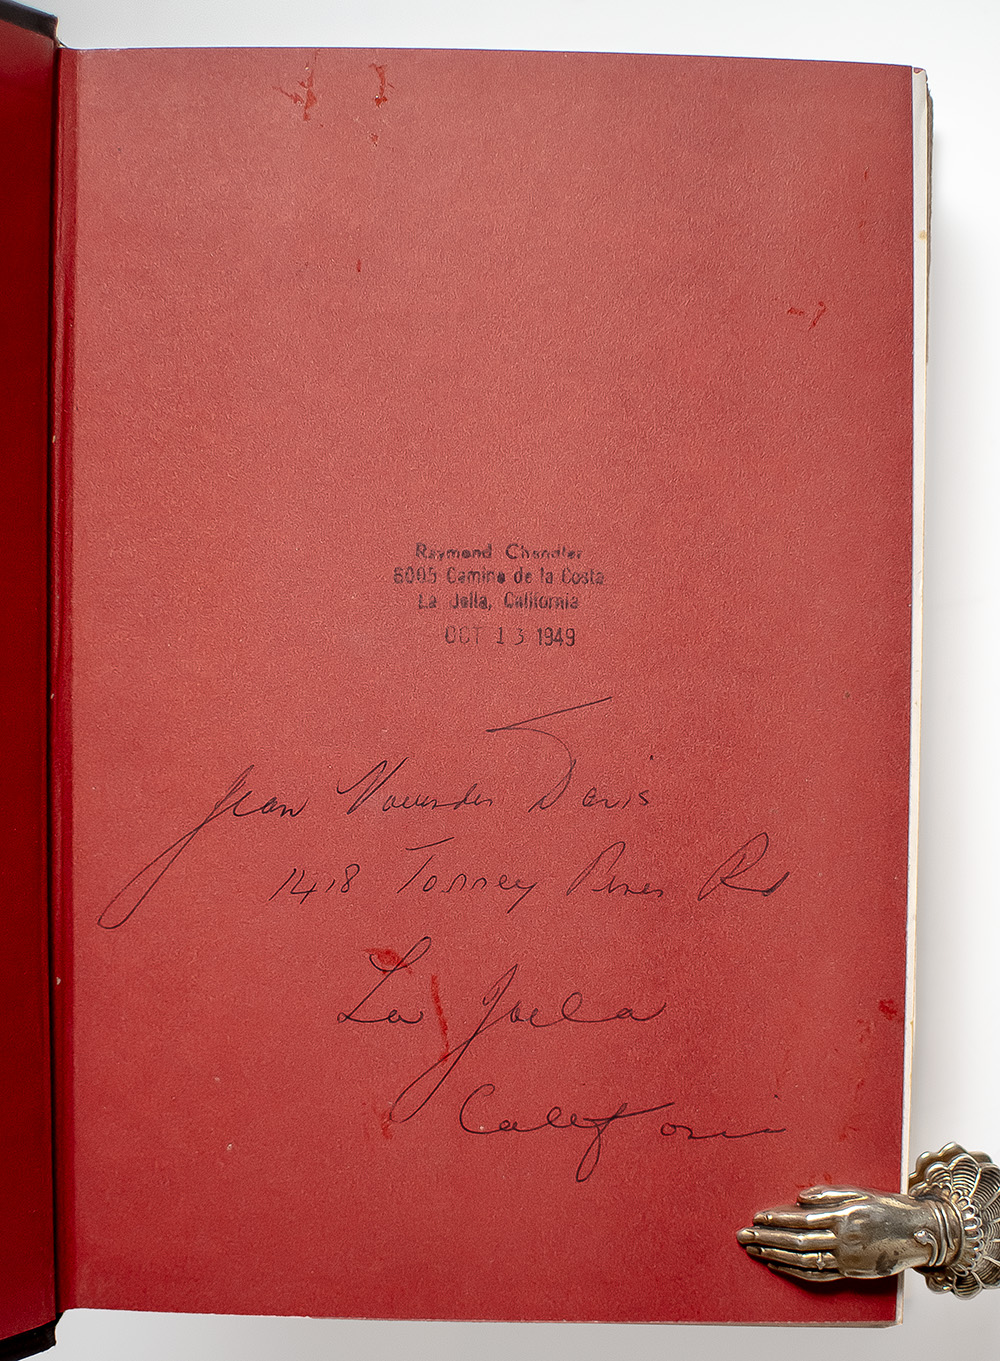 Raymond Chandler
6005 Camino de la Costa
La Jolla, California
OCT 13 1949
Jean Davis
1418 Torrey Pines Rd
La Jolla
California